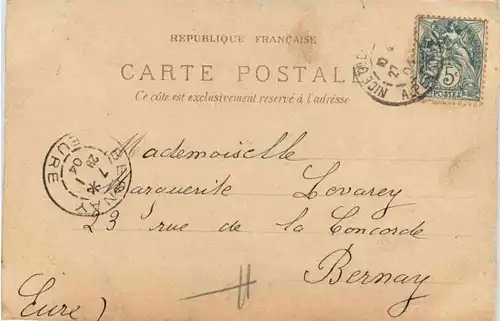 REPUBLIQUE FRANÇAISE
CARTE POSTALE
Ce côté est exclusivement réservé à l'adresse
5c
POSTES
BERNAY
7
29
04
EURE
Mademoiselle
Marguerite Levarey
23 rue de la Concorde
Bernay
(Eure)